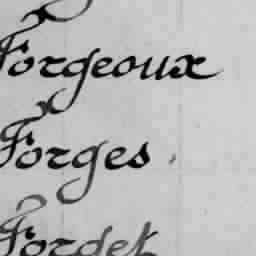 Forgeoux
Forges.
Fordet